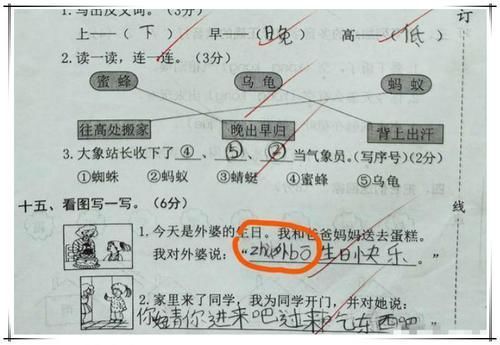 1.写出反义词。(3分)
订
上——(下) 早——(晚) 高——(低)
2.读一读，连一连。(3分)
蜜蜂 乌龟 蚂蚁
往高处搬家 晚出早归 背上出汗
3.大象站长收下了 ④ 、 ⑤ 、 ② 当气象员。(写序号)(2分)
①蜘蛛 ②蚂蚁 ③蜻蜓 ④蜜蜂 ⑤乌龟
十五、看图写一写。(6分)
线
1.今天是外婆的生日。我和爸爸妈妈送去蛋糕。
我对外婆说：“外bō生日快乐。”
2.家里来了同学，我为同学开门，并对她说：
你请你进来吧过来吃东西吧